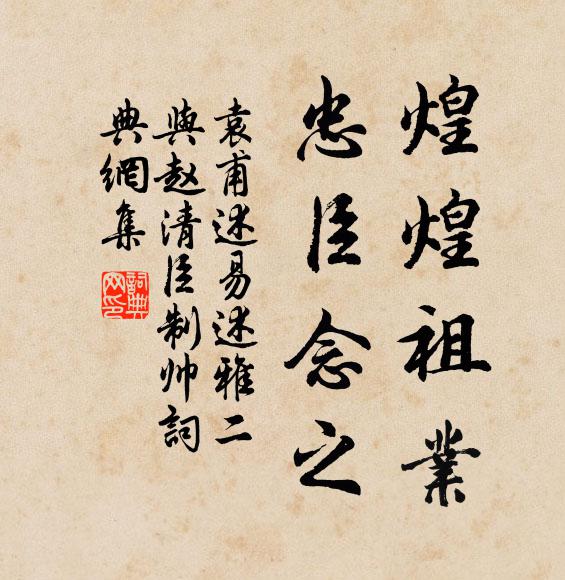 煌煌祖業
忠臣念之
袁甫述易述雅二
與赵清臣制帅詞
典網集
詞典網印